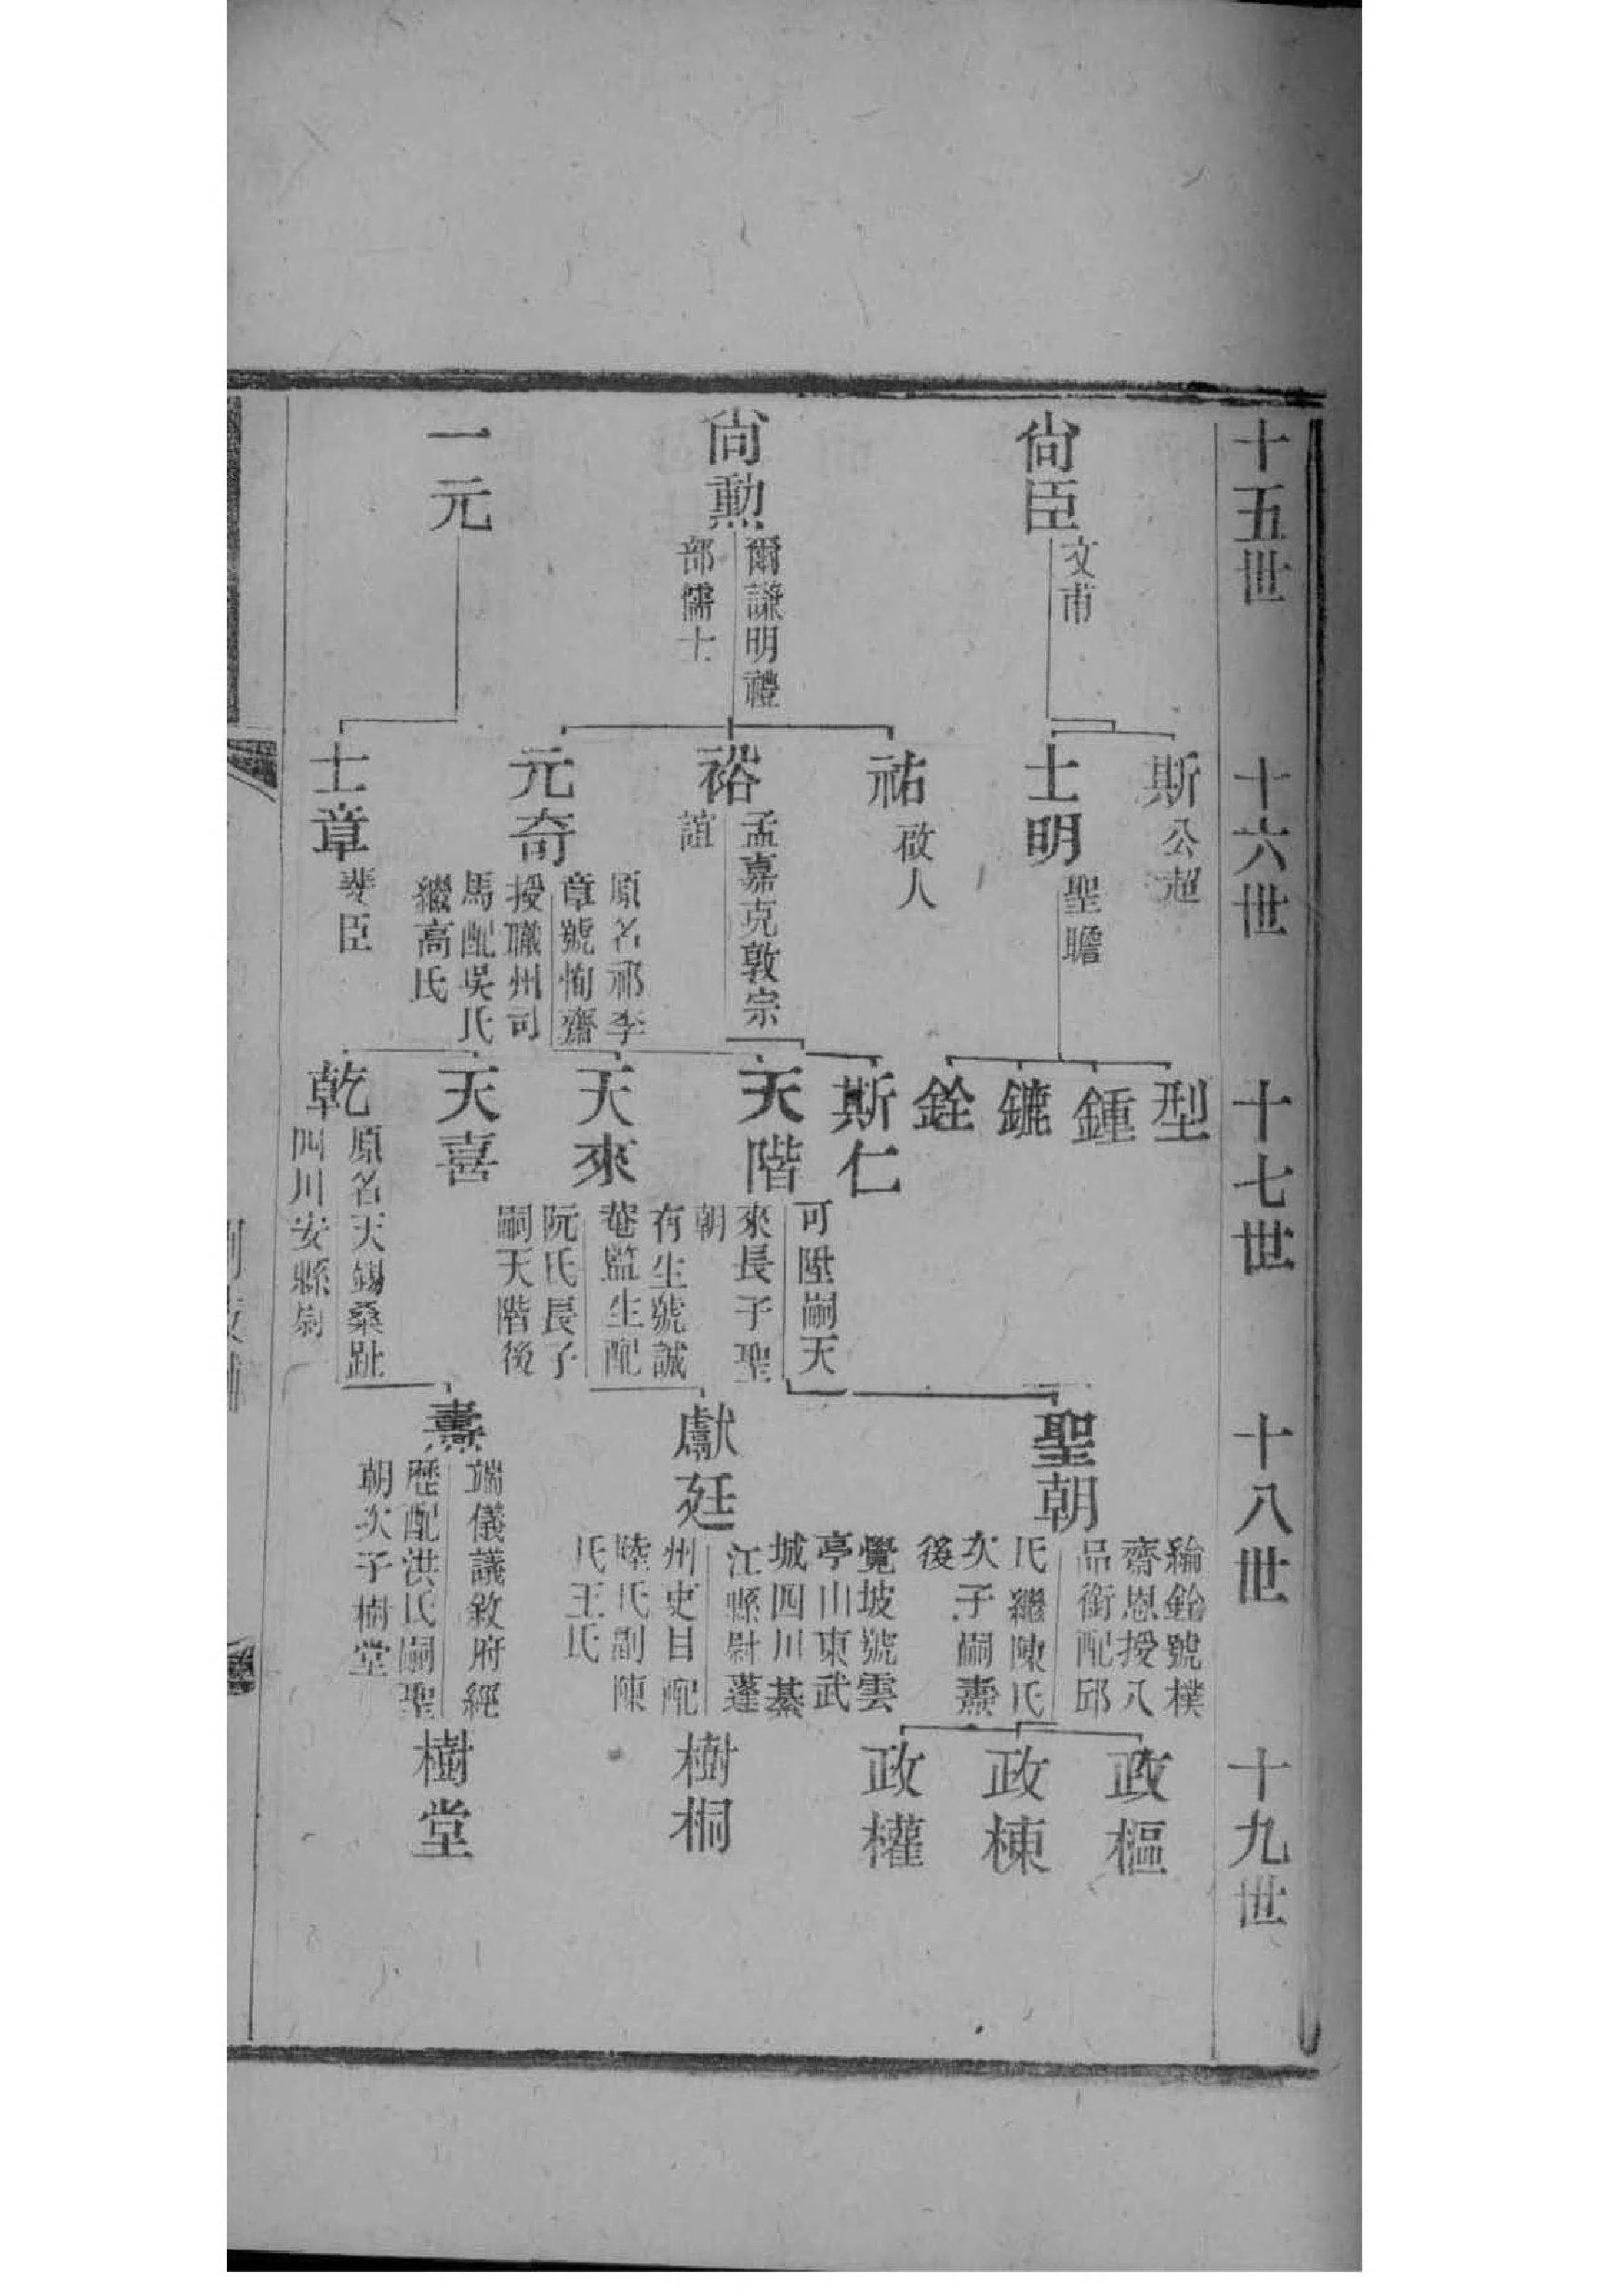 十五世
十六世
十七世
十八世
十九世
尙臣
文甫
尙勲
爾謙明禮
部儒士
一元
斯
公超
士明
聖瞻
祐
啟人
裕
孟嘉克敦宗
誼
元奇
原名祁李
章號恂齋
授職州司
馬配吳氏
繼高氏
士章
斐臣
型
鍾
鑣
銓
斯仁
天階
可陞嗣天
來長子聖
朝
天來
有生號誠
菴監生配
阮氏長子
嗣天階後
天喜
乾
原名天錫桑趾
四川安縣尉
聖朝
綸銓號樸
齋恩授八
品銜配邱
氏繼陳氏
次子嗣燾
後
獻廷
覺坡號雲
亭山東武
城四川綦
江縣尉蓬
州吏目配
陸氏副陳
氏王氏
燾
端儀議敘府經
歷配洪氏嗣聖
朝次子樹堂
政樞
政棟
政權
樹桐
樹堂